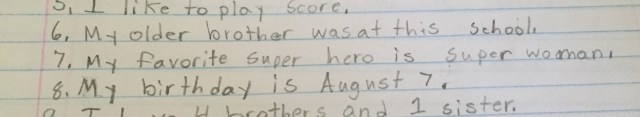 5. I like to play score.
6. My older brother was at this school.
7. My favorite super hero is super woman.
8. My birthday is August 7.
4 brothers and 1 sister.